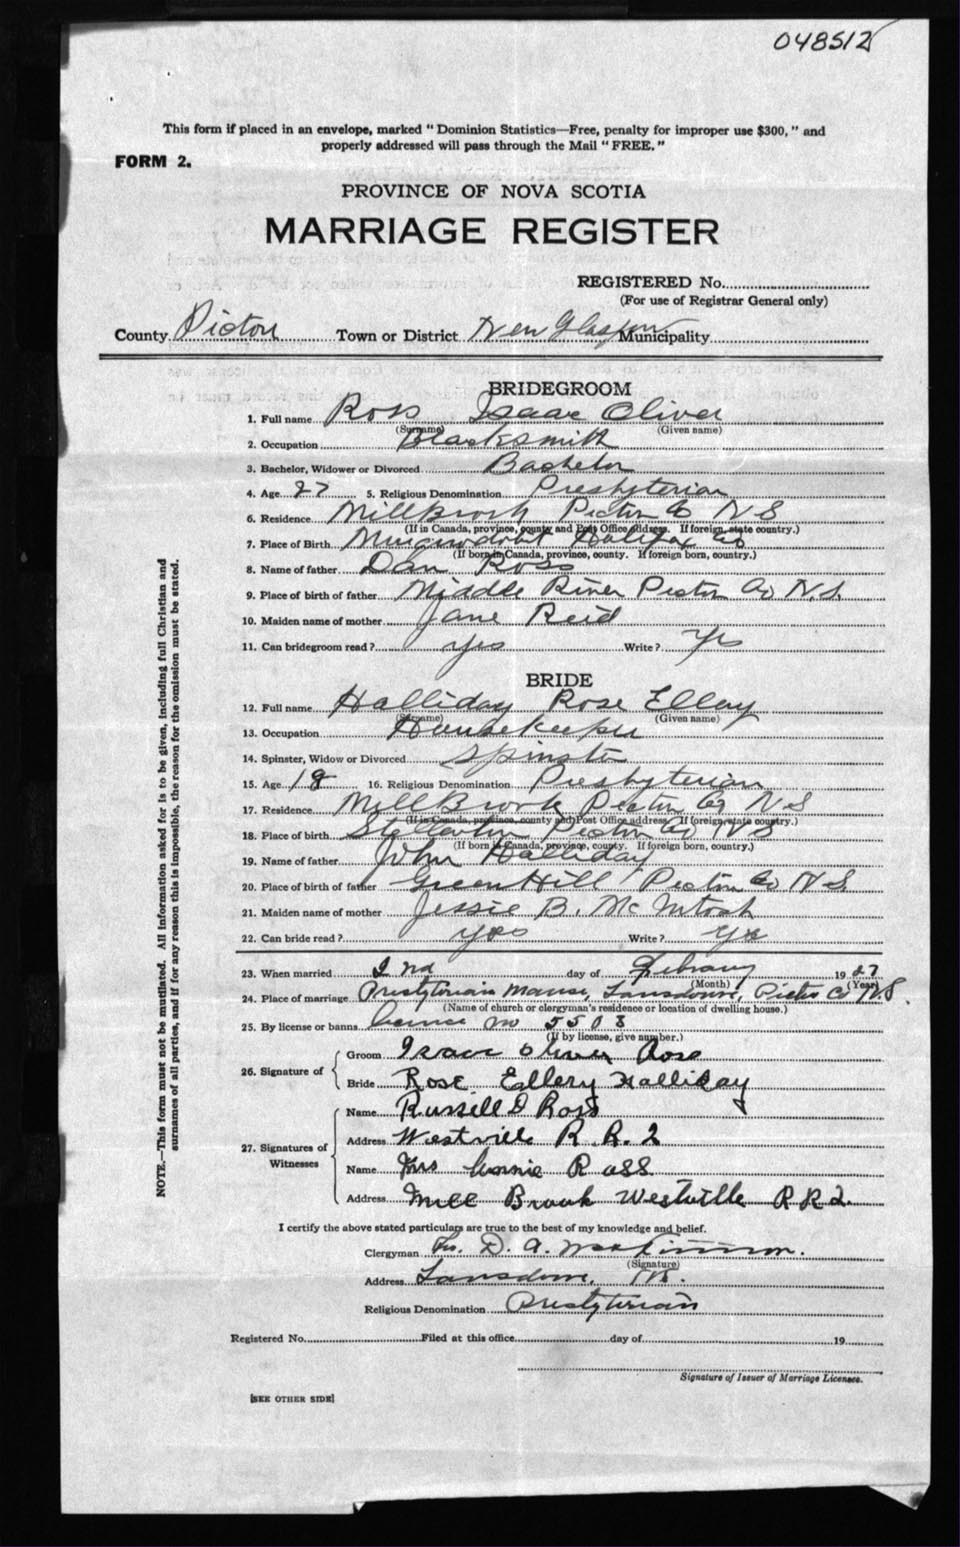 048512
This form if placed in an envelope, marked "Dominion Statistics—Free, penalty for improper use $300," and
properly addressed will pass through the Mail "FREE."
FORM 2.
PROVINCE OF NOVA SCOTIA
MARRIAGE REGISTER
REGISTERED No.
(For use of Registrar General only)
County Pictou Town or District New Glasgow Municipality
BRIDEGROOM
1. Full name Ross Isaac Oliver
(Surname) (Given name)
2. Occupation Blacksmith
3. Bachelor, Widower or Divorced Bachelor
4. Age 27 5. Religious Denomination Presbyterian
6. Residence MillBrook Pictou Co N S
(If in Canada, province, county and Post Office address. If foreign, state country.)
7. Place of Birth Halifax Co
(If born in Canada, province, county. If foreign born, country.)
8. Name of father Dan Ross
9. Place of birth of father Middle River Pictou Co N.S.
10. Maiden name of mother Jane Reid
11. Can bridegroom read? yes Write? yes
BRIDE
12. Full name Halliday Rose Ellery
(Surname) (Given name)
13. Occupation Housekeeper
14. Spinster, Widow or Divorced Spinster
15. Age 18 16. Religious Denomination Presbyterian
17. Residence MillBrook Pictou Co N S
(If in Canada, province, county and Post Office address. If foreign, state country.)
18. Place of birth Stellarton Pictou Co N S
(If born in Canada, province, county. If foreign born, country.)
19. Name of father John Halliday
20. Place of birth of father Green Hill Pictou Co N S.
21. Maiden name of mother Jessie B. McIntosh
22. Can bride read? yes Write? yes
23. When married 2nd day of February 1927
(Month) (Year)
24. Place of marriage Presbyterian Manse, Lansdowne, Pictou Co N.S.
(Name of church or clergyman's residence or location of dwelling house.)
25. By license or banns License no 5508
(If by license, give number.)
26. Signature of
Groom Isaac Oliver Ross
Bride Rose Ellery Halliday
27. Signatures of Witnesses
Name Russell D Ross
Address Westville R. R. 2
Name Mrs Ross
Address Mill Brook Westville R R 2.
I certify the above stated particulars are true to the best of my knowledge and belief.
Clergyman D. A. MacKinnon.
(Signature)
Address Lansdowne, N.S.
Religious Denomination Presbyterian
Registered No. Filed at this office day of 19
Signature of Issuer of Marriage Licenses.
[SEE OTHER SIDE]
NOTE.—This form must not be mutilated. All information asked for is to be given, including full Christian and
surnames of all parties, and if for any reason this is impossible, the reason for the omission must be stated.